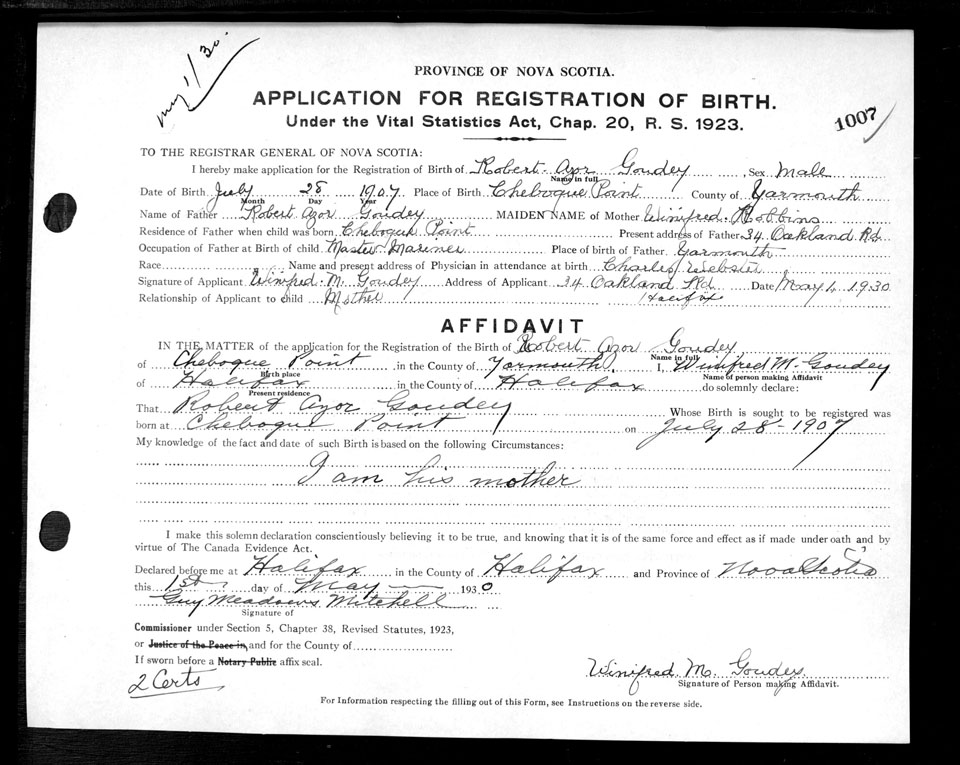 May 1/30.
PROVINCE OF NOVA SCOTIA.
APPLICATION FOR REGISTRATION OF BIRTH.
Under the Vital Statistics Act, Chap. 20, R. S. 1923.
1007
TO THE REGISTRAR GENERAL OF NOVA SCOTIA:
I hereby make application for the Registration of Birth of Robert Azor Goudey, Sex Male
Name in full
Date of Birth July 28 1907 Place of Birth Cheboque Point County of Yarmouth
Month Day Year
Name of Father Robert Azor Goudey MAIDEN NAME of Mother Winifred Robbins
Residence of Father when child was born Cheboque Point Present address of Father 34 Oakland Rd.
Occupation of Father at Birth of child Master Mariner Place of birth of Father Yarmouth
Race Name and present address of Physician in attendance at birth Charles Webster
Signature of Applicant Winifred M. Goudey Address of Applicant 34 Oakland Rd Date May 1, 1930
Relationship of Applicant to child Mother Halifax
AFFIDAVIT
IN THE MATTER of the application for the Registration of the Birth of Robert Azor Goudey
Name in full
of Cheboque Point, in the County of Yarmouth, I, Winifred M. Goudey
Birth place Name of person making Affidavit
of Halifax in the County of Halifax do solemnly declare:
Present residence
That Robert Azor Goudey Whose Birth is sought to be registered was
born at Cheboque Point on July 28 - 1907
My knowledge of the fact and date of such Birth is based on the following Circumstances:
I am his mother
I make this solemn declaration conscientiously believing it to be true, and knowing that it is of the same force and effect as if made under oath and by
virtue of The Canada Evidence Act.
Declared before me at Halifax in the County of Halifax and Province of Nova Scotia
this 1st day of May 1930
Guy Meadows Mitchell
Signature of
Commissioner under Section 5, Chapter 38, Revised Statutes, 1923,
or Justice of the Peace in, and for the County of
If sworn before a Notary Public affix seal.
2 Certs
Winifred M. Goudey
Signature of Person making Affidavit.
For Information respecting the filling out of this Form, see Instructions on the reverse side.